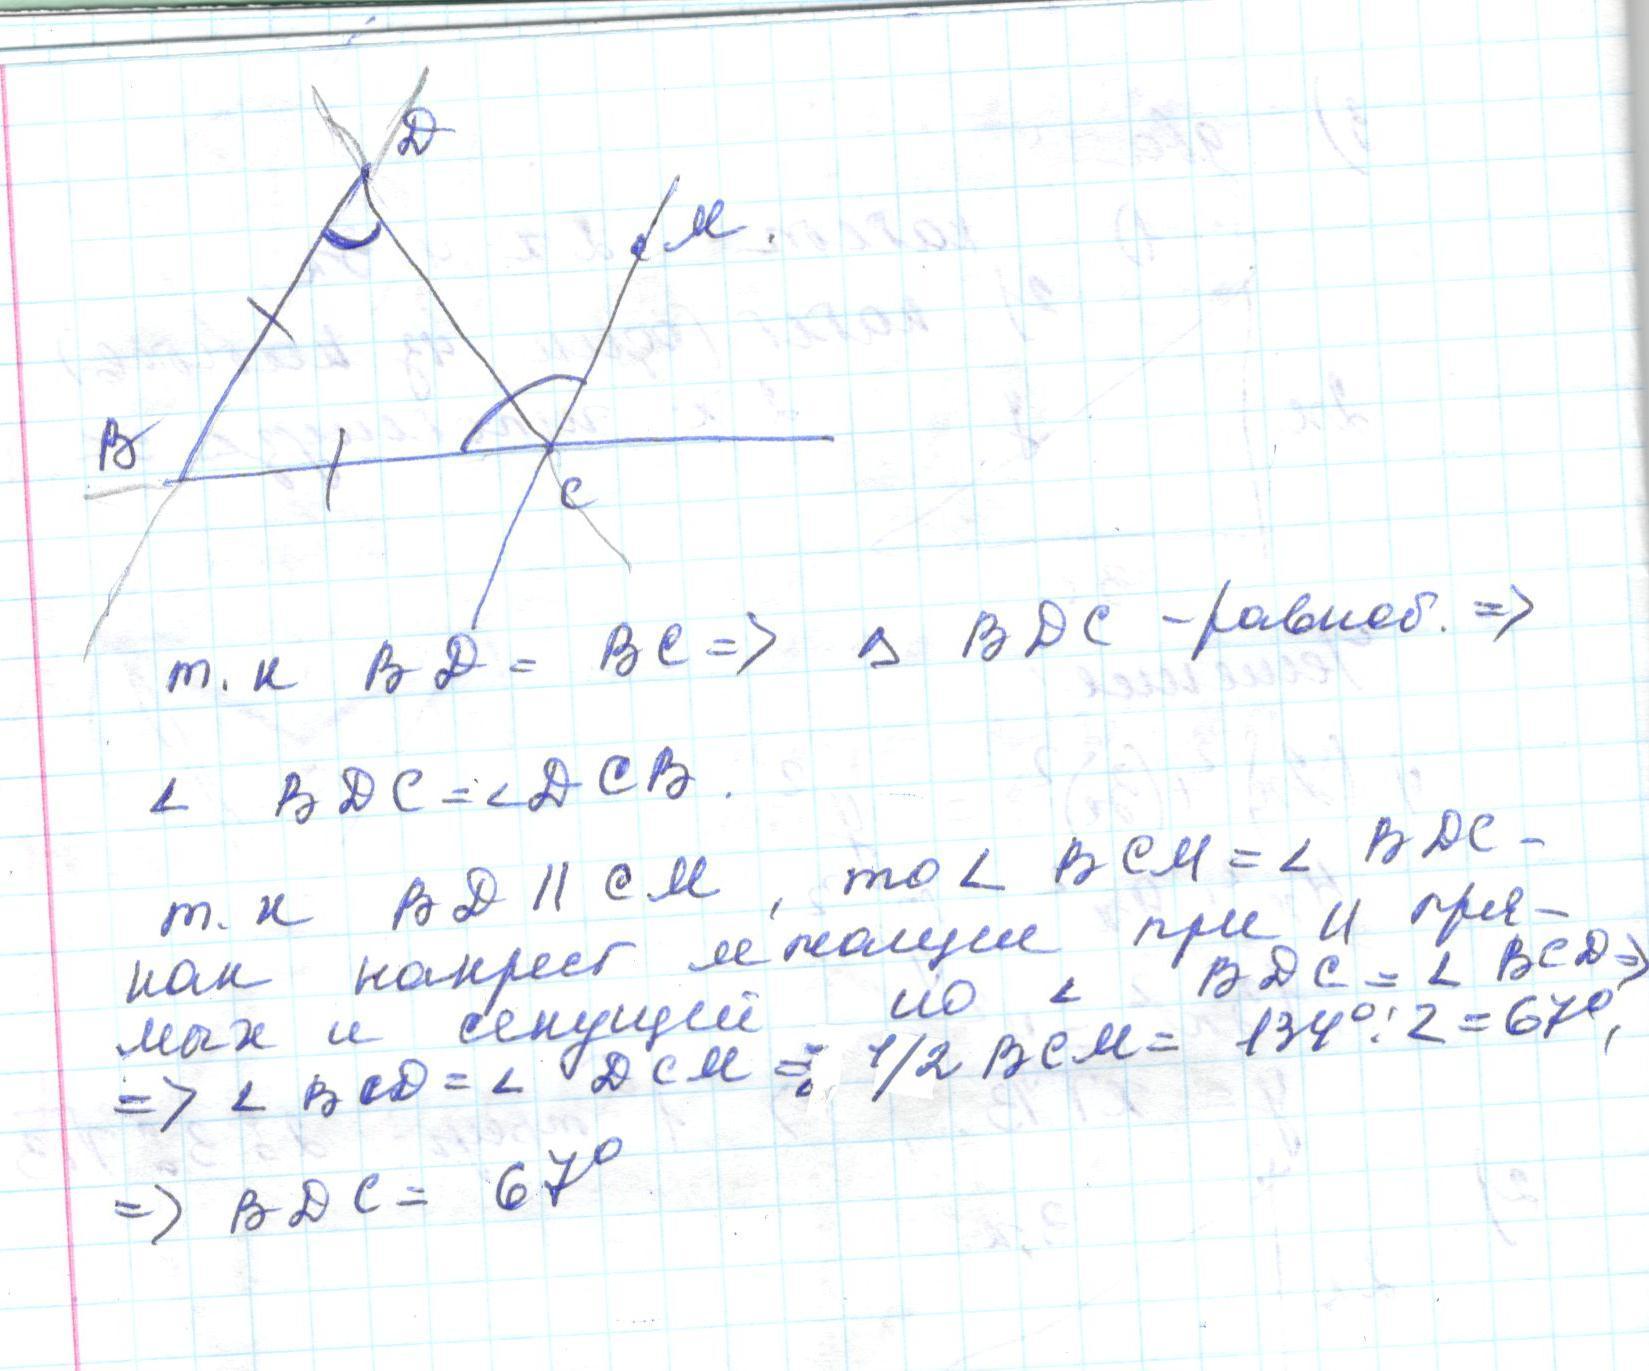 D
M
B
C
т. к BD = BC => ∆ BDC - равноб. =>
∠ BDC = ∠DCB.
т. к BD || CM, то ∠ BCM = ∠ BDC -
как накрест лежащие при || пря-
мых и секущей но ∠ BDC = ∠ BCD =>
=> ∠ BCD = ∠ DCM = 1/2 BCM = 134° : 2 = 67°,
=> BDC = 67°